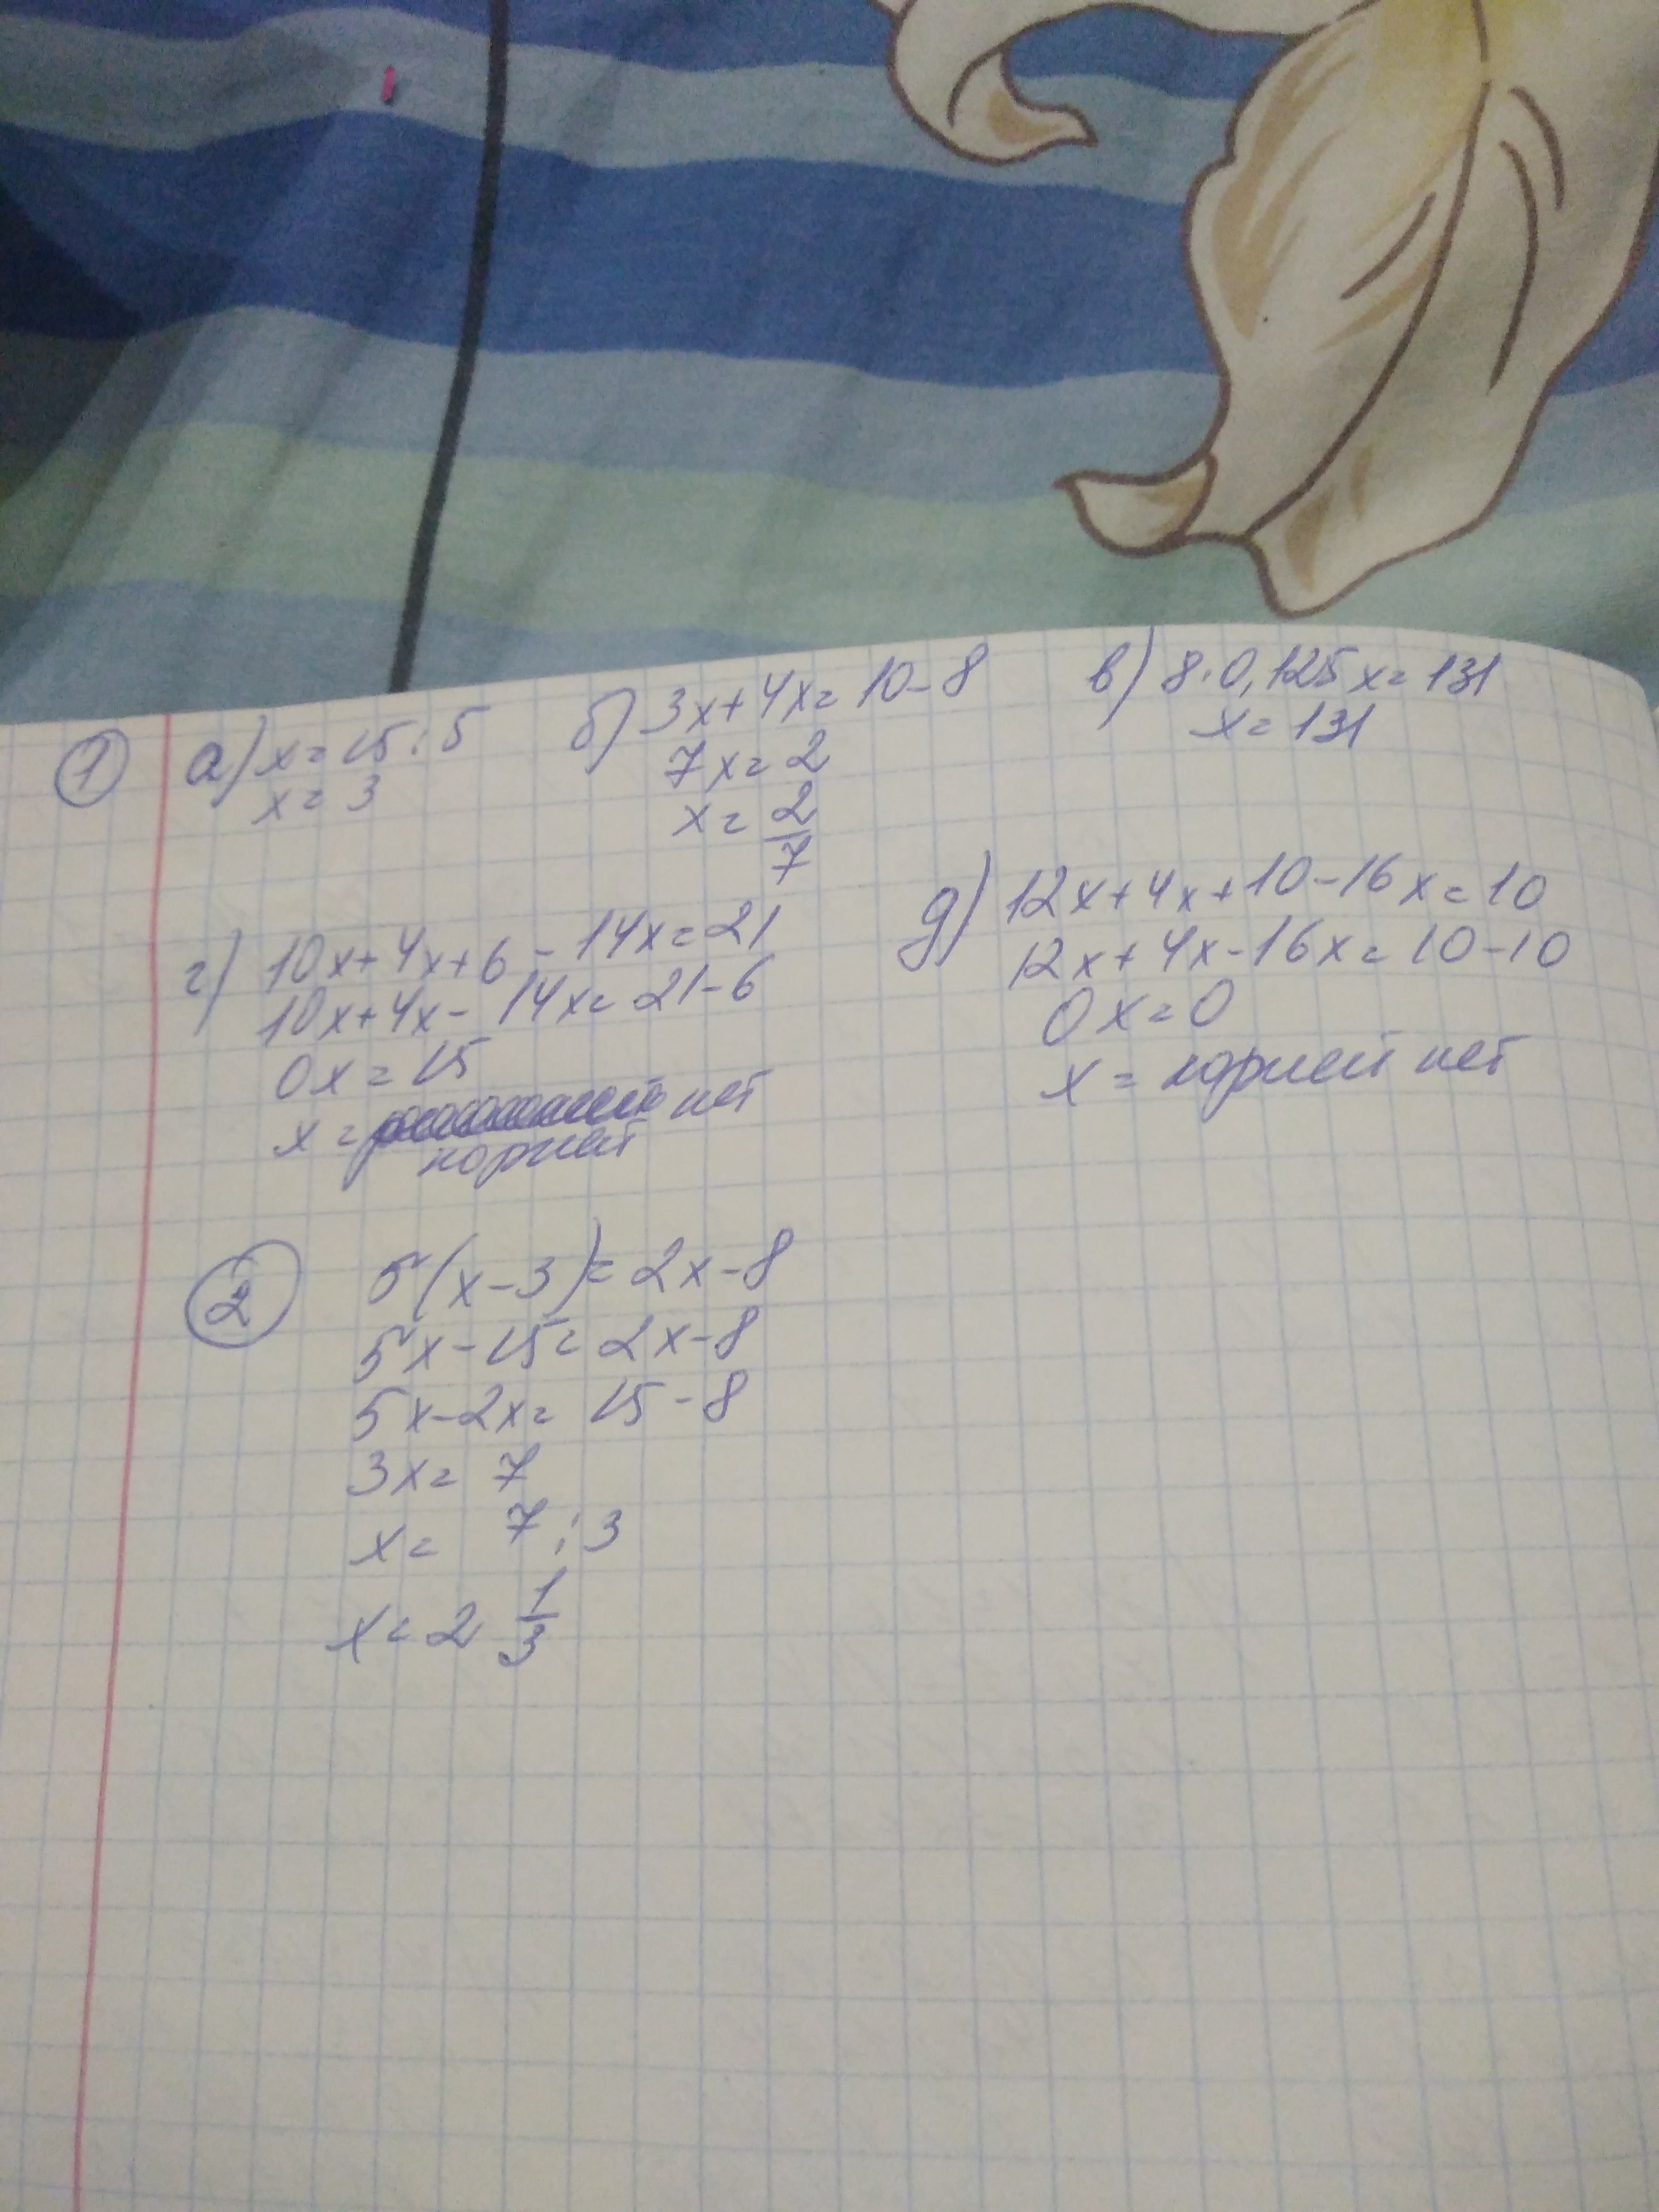 1 а) x = 15 : 5
x = 3
б) 3x + 4x = 10 - 8
7x = 2
x = 2/7
в) 8 · 0,125x = 131
x = 131
г) 10x + 4x + 6 - 14x = 21
10x + 4x - 14x = 21 - 6
0x = 15
x = нет
корней
д) 12x + 4x + 10 - 16x = 10
12x + 4x - 16x = 10 - 10
0x = 0
x = корней нет
2 5(x - 3) = 2x - 8
5x - 15 = 2x - 8
5x - 2x = 15 - 8
3x = 7
x = 7 : 3
x = 2 1/3